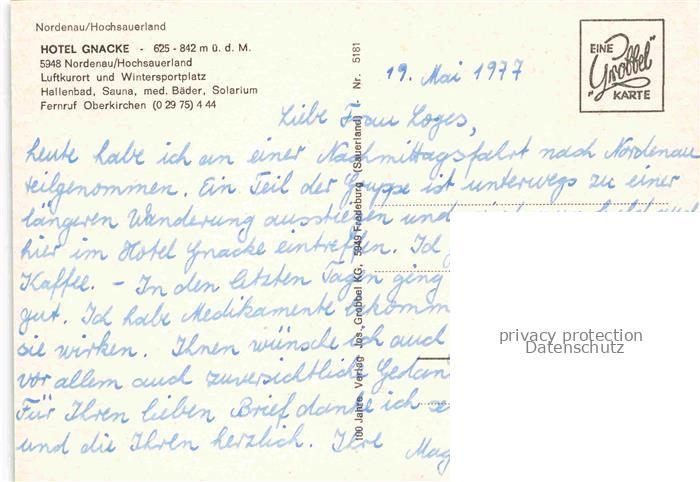 Nordenau/Hochsauerland
HOTEL GNACKE - 625 - 842 m ü. d. M.
5948 Nordenau/Hochsauerland
Luftkurort und Wintersportplatz
Hallenbad, Sauna, med. Bäder, Solarium
Fernruf Oberkirchen (0 29 75) 4 44
EINE
"Grobbel"
KARTE
19. Mai 1977
Liebe Frau Loges,
heute habe ich an einer Nachmittagsfahrt nach Nordenau
teilgenommen. Ein Teil der Gruppe ist unterwegs zu einer
längeren Wanderung ausstiegen und
hier im Hotel Gnacke eintreffen. Ich
Kaffee. - In den letzten Tagen ging
gut. Ich habe Medikamente bekomm
sie wirken. Ihnen wünsche ich auch
vor allem auch zuversichtliche Gedan
Für Ihren lieben Brief danke ich se
und die Ihren herzlich. Ihre Mag
100 Jahre Verlag Jos. Grobbel KG, 5949 Fredeburg (Sauerland) - Nr. 5181
privacy protection
Datenschutz